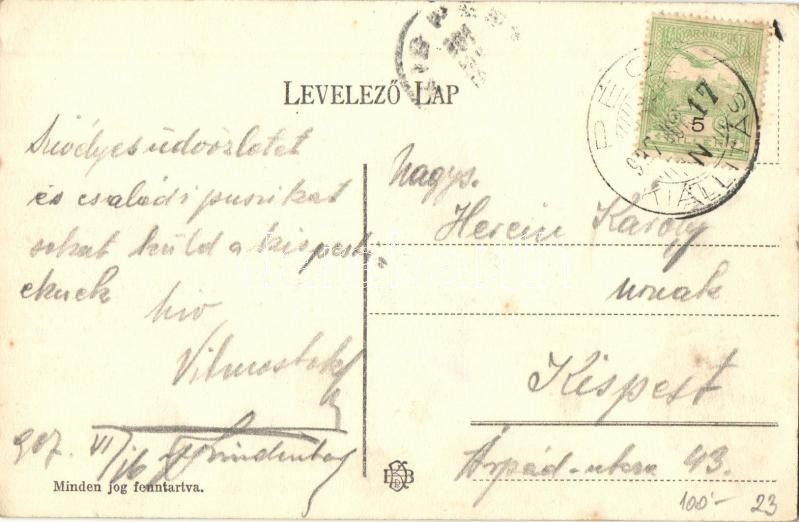 LEVELEZŐ LAP
Szívélyes üdvözletet
és családi puszikat
sokat küld a kispesti
eknek
hiv
Vilmostok
907. VI/16
Minden jog fenntartva.
Nagys.
Károly
urnak
Kispest
Árpád-utcza 43.
MAGYAR KIR. POSTA
PÉCS
17
5
100'- 23